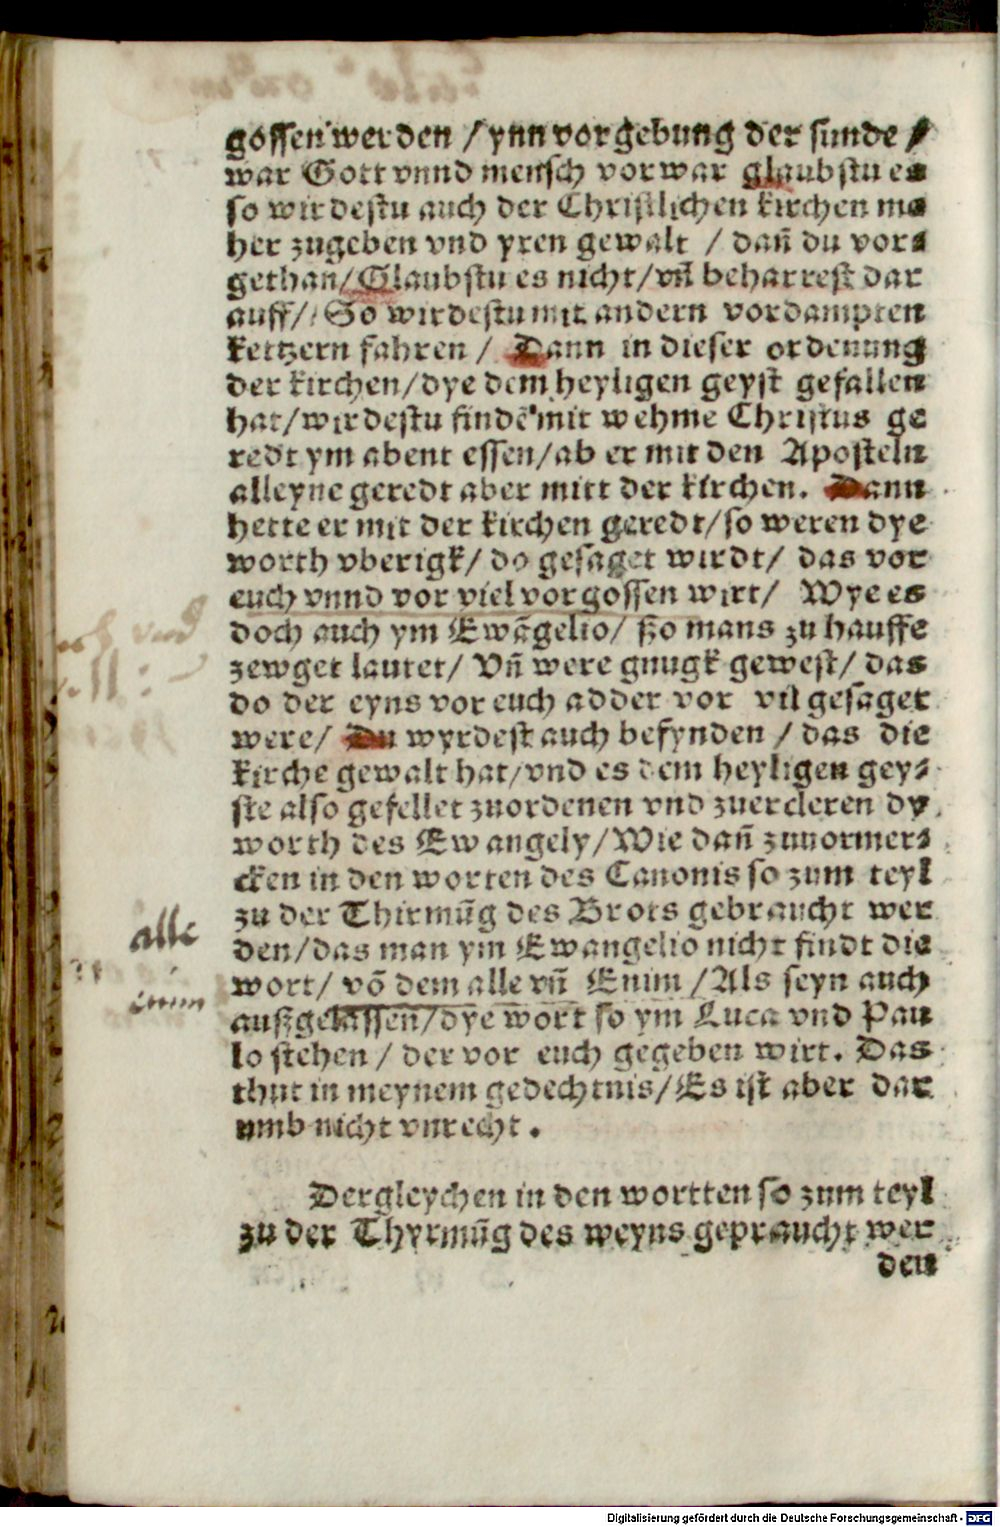 gossen werden / ynn vorgebung der sunde /
war Gott vnnd mensch vorwar glaubstu es
so wirdestu auch der Christlichen kirchen me
her zugeben vnd yren gewalt / dañ du vor⸗
gethan / Glaubstu es nicht / vñ beharrest dar
auff / So wirdestu mit andern vordampten
kettzern fahren / Dann in dieser ordenung
der kirchen / dye dem heyligen geyst gefallen
hat / wirdestu findē mit wehme Christus ge
redt ym abent essen / ab er mit den Aposteln
alleyne geredt aber mitt der kirchen. Dann
hette er mit der kirchen geredt / so weren dye
worth vberigk / do gesaget wirdt / das vor
euch vnnd vor viel vorgossen wirt / Wye es
doch auch ym Ewāgelio / ßo mans zu hauffe
zewget lautet / Vñ were gnugk gewest / das
do der eyns vor euch adder vor vil gesaget
were / Du wyrdest auch befynden / das die
kirche gewalt hat / vnd es dem heyligen gey⸗
ste also gefellet zuordenen vnd zuercleren dy
worth des Ewangely / Wie dañ zuuormer⸗
cken in den worten des Canonis so zum teyl
zu der Thirmūg des Brots gebraucht wer
den / das man ym Ewangelio nicht findt die
wort / vō dem alle vñ Enim / Als seyn auch
außgelassen / dye wort so ym Luca vnd Pau
lo stehen / der vor euch gegeben wirt. Das
thut in meynem gedechtnis / Es ist aber dar
umb nicht vnrecht.
Dergleychen in den wortten so zum teyl
zu der Thyrmūg des weyns gepraucht wer
den
alle
enim
Digitalisierung gefördert durch die Deutsche Forschungsgemeinschaft - DFG